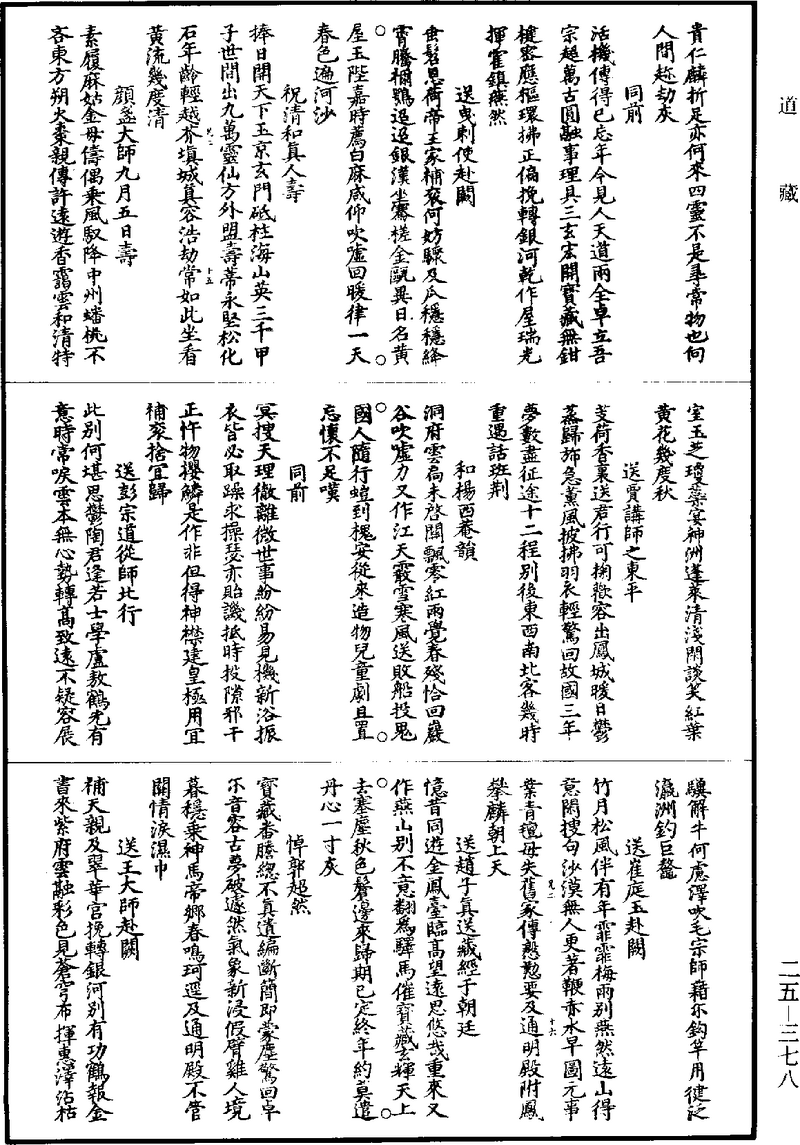 道藏
貴仁麟折足亦何來四靈不是尋常物也向
人間趂劫灰
同前
活機傳得已忘年今見人天道兩全卓立吾
宗超萬古圓融事理具三玄宏開寶藏無鉗
楗密應樞環拂正偏挽轉銀河乾作屋瑞光
揮霍鎮燕然
送曳剌使赴闕
垂髫恩荷帝王家補衮何妨驟及瓜穩穩絳
霄騰禰鶚迢迢銀漢坐騫槎金甌異日名黄
屋玉陛嘉時薦白麻咸仰吹噓回暖律一天
春色遍河沙
祝清和真人壽
捧日開天下玉京玄門砥柱海山英三千甲
子世間出九萬靈仙方外盟壽蒂永堅松化
石年齡輕越芥塡城真容浩劫常如此坐看
黄流幾度清
顔盆大師九月五日壽
素履麻姑金母儔偶乘風馭降中州蟠桃不
吝東方朔火棗親傳許遠遊香靄雲和清特
室玉芝瓊蘂宴神洲蓬萊清淺閑談笑紅葉
黄花幾度秋
送賈講師之東平
芰荷香裏送君行可掬歡容出鳳城暖日鬱
蒸歸斾急薰風披拂羽衣輕驚回故國三年
夢數盡征途十二程别後東西南北客幾時
重遇話班荆
和楊西菴韻
洞府雲扃未啓關飄零紅雨覺春殘恰回巖
谷吹噓力又作江天霰雪寒風送敗船投鬼
國人隨行螘到槐安從來造物兒童劇且置
忘懷不足嘆
同前
冥搜天理徹離微世事紛紛易見機新浴振
衣皆必取躁求操瑟亦貽譏抵時投隙邪干
正忤物攖鱗是作非但得神襟建皇極用宜
補衮捨宜歸
送彭宗道從師北行
此别何堪思鬱陶君逢若士學盧敖鶴先有
意時常唳雲本無心勢轉高致遠不疑容展
驥解牛何慮澤吹毛宗師藉尔鈎竿用徤泛
瀛洲釣巨鼇
送崔庭玉赴闕
竹月松風伴有年霏霏梅雨别燕然遠山得
意閑搜句沙漠無人更著鞭赤水早圖元事
業青氊毋失舊家傳慇懃要及通明殿附鳳
攀麟朝上天
送趙子真送藏經于朝廷
憶昔同遊金鳳臺臨高望遠思悠哉重來又
作燕山别不意翻爲驛馬催寶藏玄輝天上
去塞塵秋色鬢邊來歸期已定終年約莫遣
丹心一寸灰
悼郭超然
寶藏番謄總不真遺編斷簡即蒙塵驚回卓
尔音容古夢破遽然氣象新浸假臂雞人境
暮穩乘神馬帝鄉春鳴珂遥及通明殿不管
關情淚濕巾
送王大師赴闕
補天親及翠華宫挽轉銀河别有功鶴報金
書來紫府雲融彩色見蒼穹布揮惠澤沾枯
二五—三七八